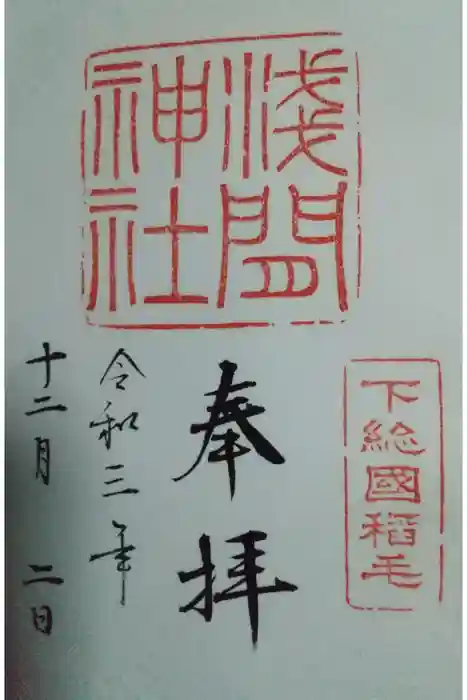 淺間
神社
下総國稲毛
奉拝
令和三年
十二月 二日